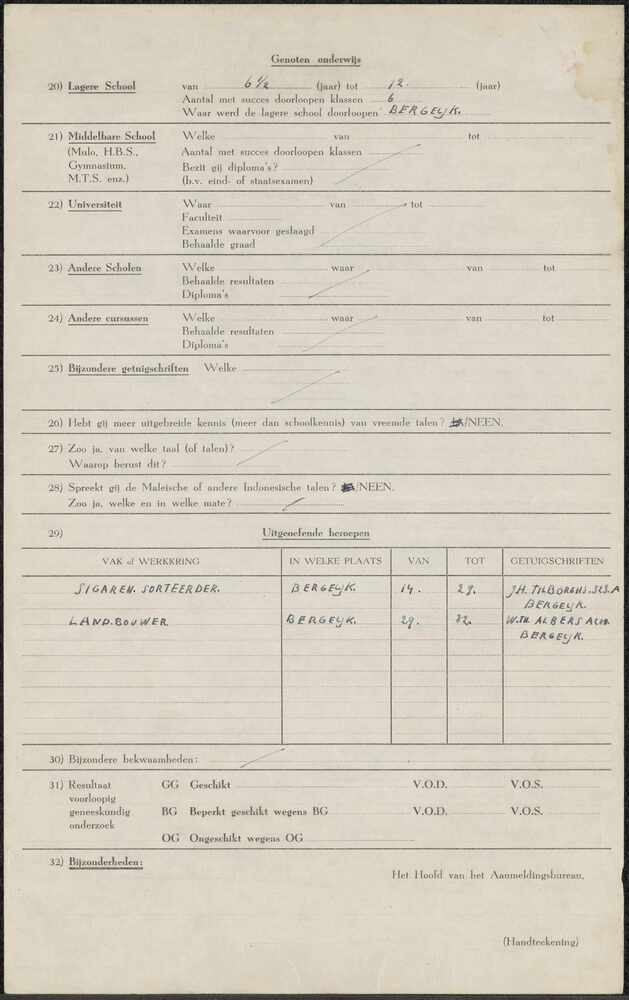 Genoten onderwijs
20) Lagere School van 6 1/2 (jaar) tot 12. (jaar)
Aantal met succes doorloopen klassen 6
Waar werd de lagere school doorloopen BERGEIJK.
21) Middelbare School Welke van tot
(Mulo, H.B.S., Aantal met succes doorloopen klassen
Gymnasium, Bezit gij diploma's?
M.T.S. enz.) (b.v. eind- of staatsexamen)
22) Universiteit Waar van tot
Faculteit
Examens waarvoor geslaagd
Behaalde graad
23) Andere Scholen Welke waar van tot
Behaalde resultaten
Diploma's
24) Andere cursussen Welke waar van tot
Behaalde resultaten
Diploma's
25) Bijzondere getuigschriften Welke
26) Hebt gij meer uitgebreide kennis (meer dan schoolkennis) van vreemde talen? /NEEN.
27) Zoo ja, van welke taal (of talen)?
Waarop berust dit?
28) Spreekt gij de Maleische of andere Indonesische talen? /NEEN.
Zoo ja, welke en in welke mate?
29) Uitgeoefende beroepen
VAK of WERKKRING IN WELKE PLAATS VAN TOT GETUIGSCHRIFTEN
SIGAREN. SORTEERDER. BERGEIJK. 14. 29. JH. TILBORGHS.
BERGEIJK.
LAND.BOUWER. BERGEIJK. 29. 32. W.TH. ALBERS
BERGEIJK.
30) Bijzondere bekwaamheden:
31) Resultaat GG Geschikt V.O.D. V.O.S.
voorloopig
geneeskundig BG Beperkt geschikt wegens BG V.O.D. V.O.S.
onderzoek
OG Ongeschikt wegens OG
32) Bijzonderheden:
Het Hoofd van het Aanmeldingsbureau,
(Handteekening)